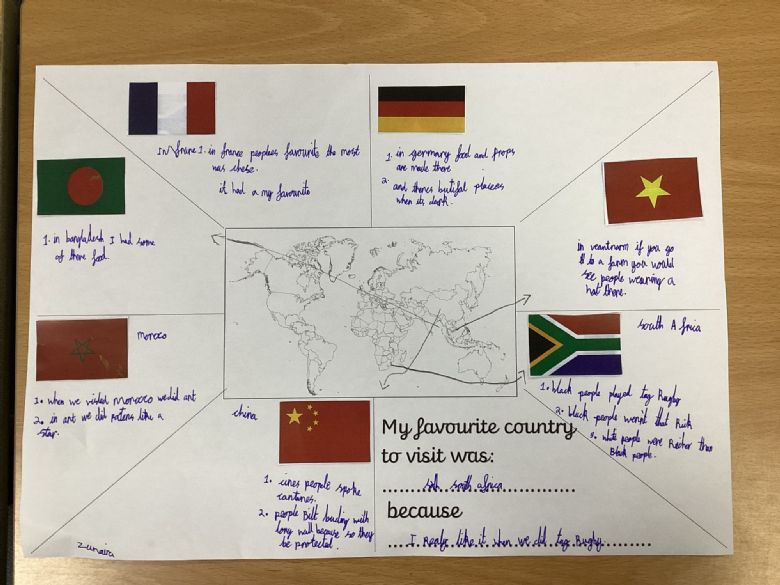 In frane 1. in france peoplees favourite the most
was chese.
it had a my favourite
1. in germany food and props
are made there
2. and theres butiful placeas
when its dark.
1. in bangladesh I had some
of there food.
in veantnarm if you go
to a farm you would
see people wearing a
hat there.
moroco
1. when we visted Moroco we did art
2. in art we did patens like a
star.
south Africa
1. black people played tag Rugby
2. black people weren't that Rich
3. white people were Richer than
Black people.
china
1. cines people spoke
cantanes.
2. people Bilt building with
long wall because so they
be protected.
My favourite country
to visit was:
south africa
because
I Realy like it when we did tag Rugby.
Zunaira